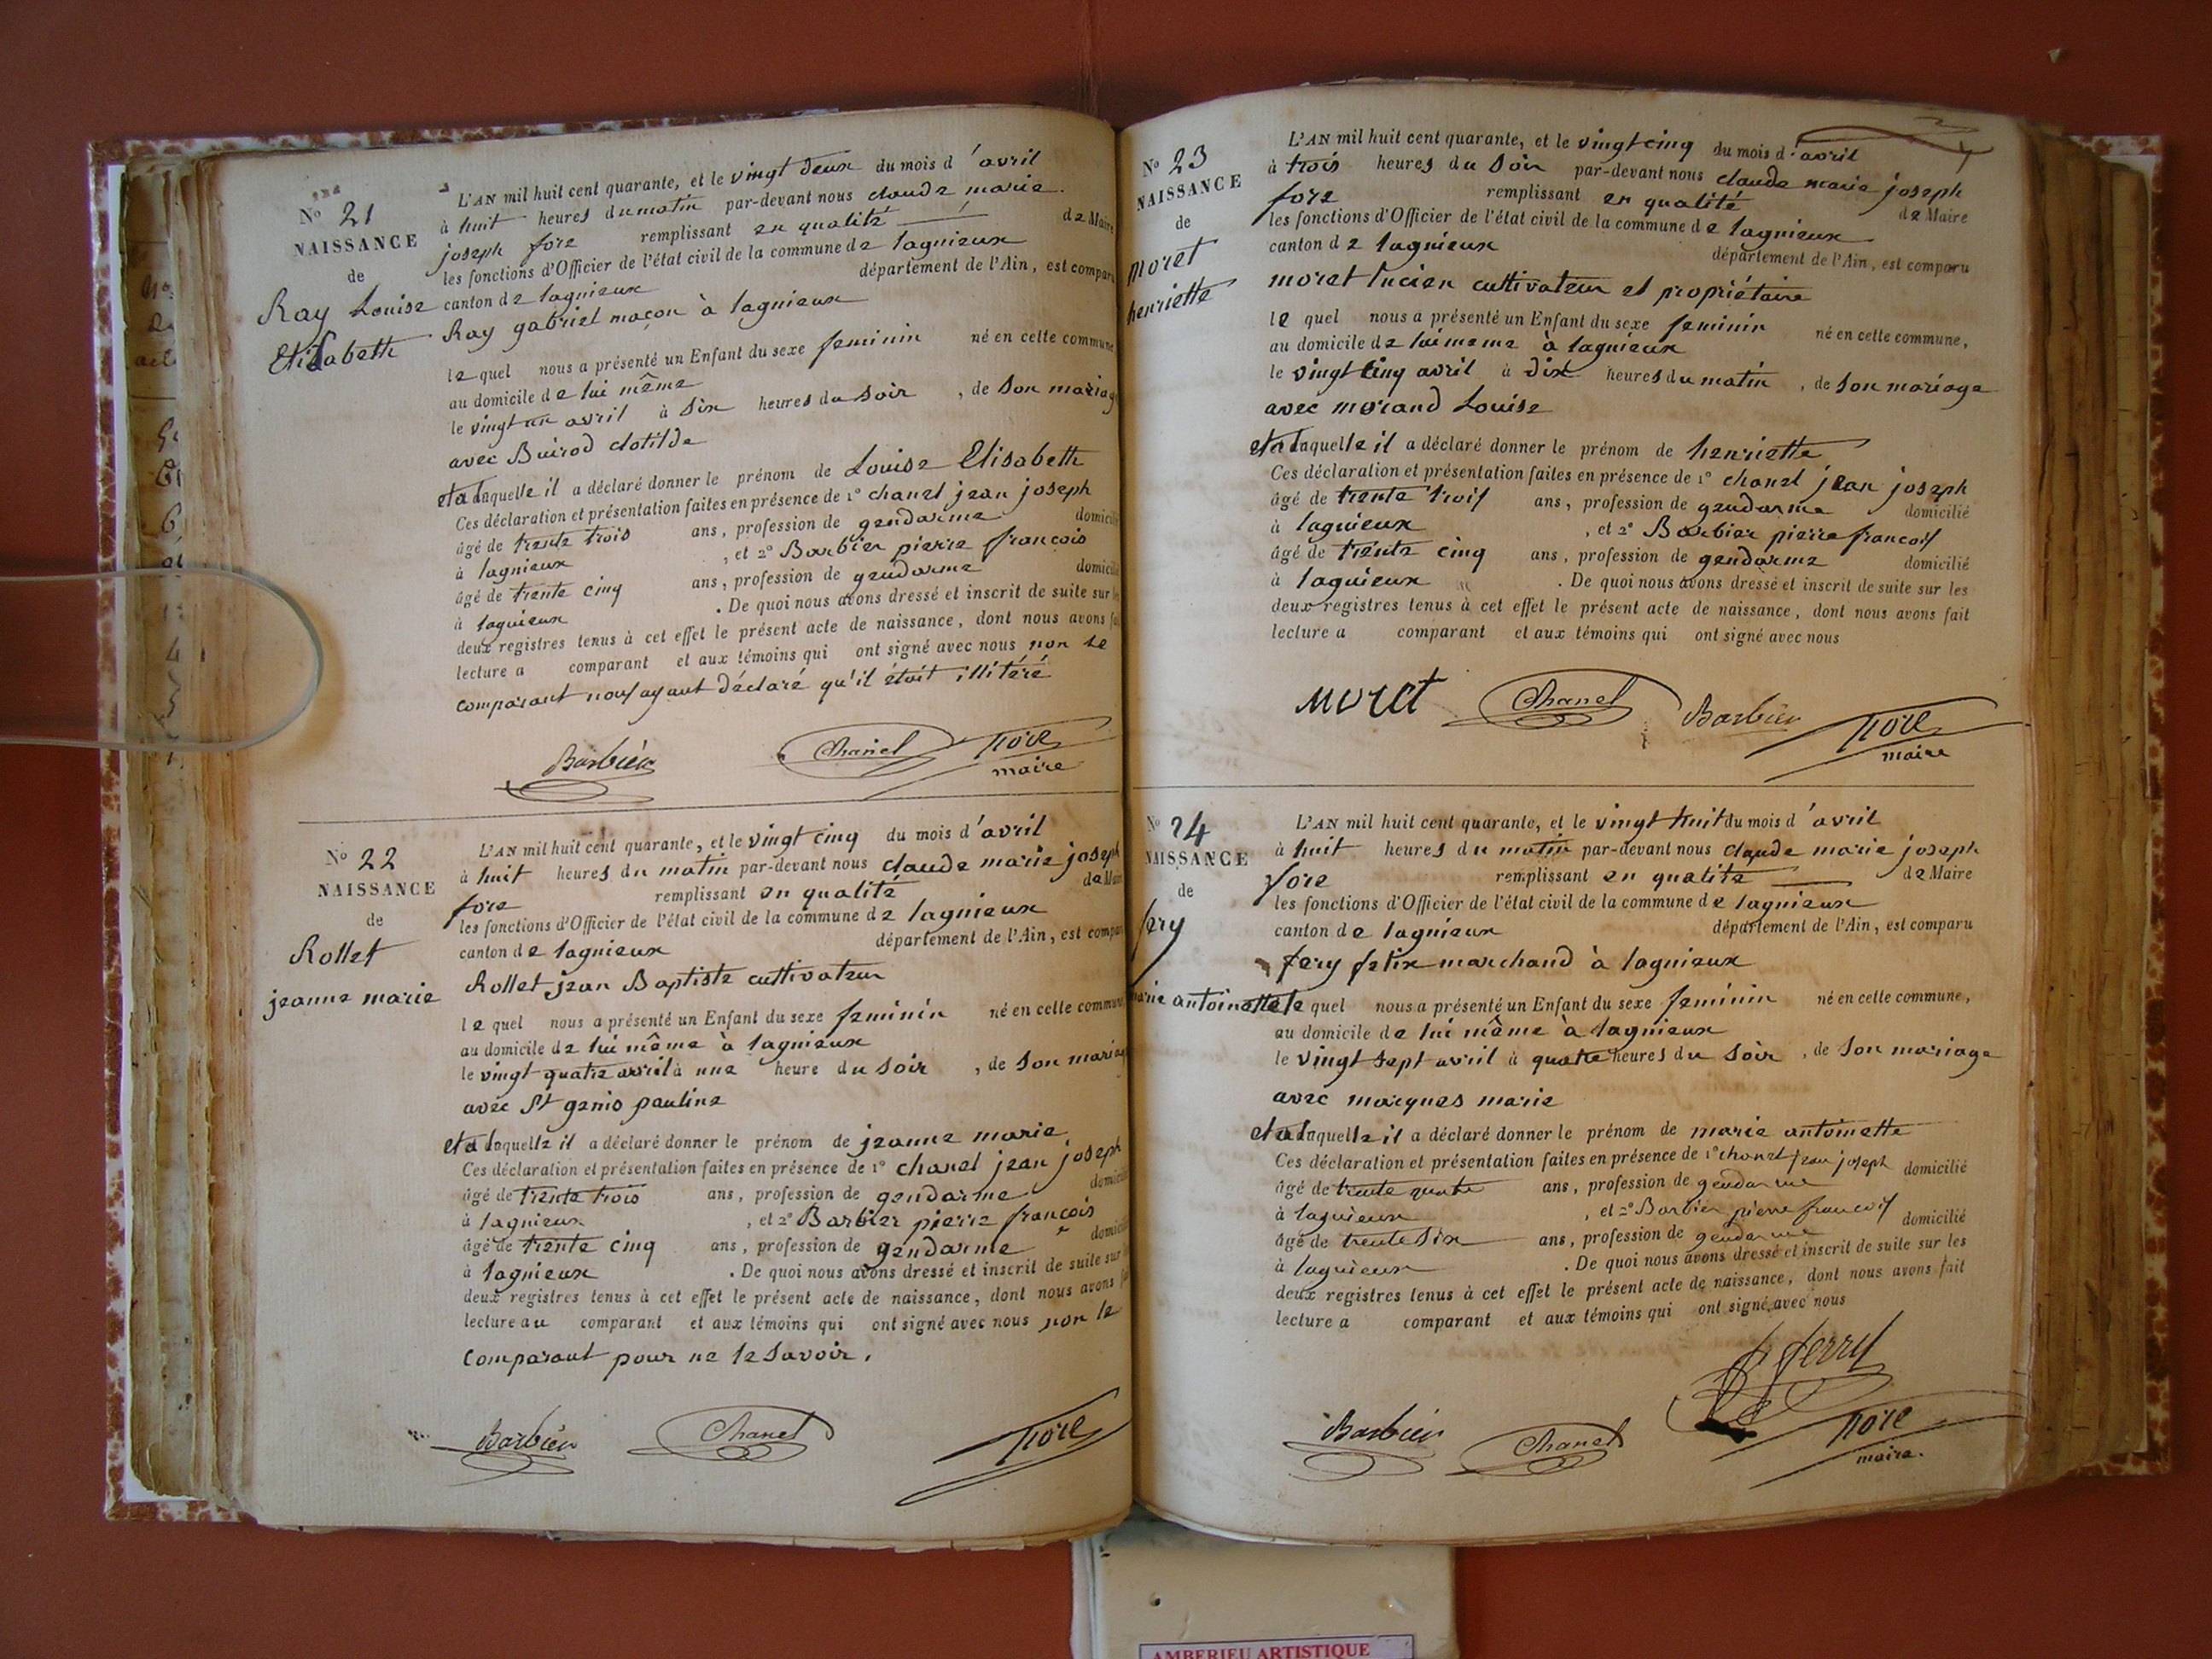 N° 21
NAISSANCE
de
Ray Louise
Elisabeth
L'AN mil huit cent quarante, et le vingt deux du mois d'avril
à huit heures du matin par-devant nous claude marie
joseph fore remplissant en qualité de Maire
les fonctions d'Officier de l'état civil de la commune de lagnieux
canton de lagnieux département de l'Ain, est comparu
Ray gabriel maçon à lagnieux
le quel nous a présenté un Enfant du sexe feminin né en cette commune
au domicile de lui même
le vingt un avril à six heures du soir, de son mariage
avec Buirod clotilde
et a laquelle il a déclaré donner le prénom de Louise Elisabeth
Ces déclaration et présentation faites en présence de 1° chanel jean joseph
âgé de trente trois ans, profession de gendarme domicilié
à lagnieux, et 2° Barbier pierre francois
âgé de trente cinq ans, profession de gendarme domicilié
à lagnieux. De quoi nous avons dressé et inscrit de suite sur les
deux registres tenus à cet effet le présent acte de naissance, dont nous avons fait
lecture a comparant et aux témoins qui ont signé avec nous non le
comparant nous ayant déclaré qu'il étoit illitéré
Barbier Chanel fore
maire
N° 22
NAISSANCE
de
Rollet
jeanne marie
L'AN mil huit cent quarante, et le vingt cinq du mois d'avril
à huit heures du matin par-devant nous claude marie joseph
fore remplissant en qualité de Maire
les fonctions d'Officier de l'état civil de la commune de lagnieux
canton de lagnieux département de l'Ain, est comparu
Rollet jean Baptiste cultivateur
le quel nous a présenté un Enfant du sexe feminin né en cette commune
au domicile de lui même à lagnieux
le vingt quatre avril à une heure du soir, de son mariage
avec St genis pauline
et a laquelle il a déclaré donner le prénom de jeanne marie
Ces déclaration et présentation faites en présence de 1° chanel jean joseph
âgé de trente trois ans, profession de gendarme domicilié
à lagnieux, et 2° Barbier pierre françois
âgé de trente cinq ans, profession de gendarme domicilié
à lagnieux. De quoi nous avons dressé et inscrit de suite sur les
deux registres tenus à cet effet le présent acte de naissance, dont nous avons fait
lecture au comparant et aux témoins qui ont signé avec nous non le
comparant pour ne le savoir.
Barbier Chanel fore
N° 23
NAISSANCE
de
moret
henriette
L'AN mil huit cent quarante, et le vingt cinq du mois d'avril
à trois heures du soir par-devant nous claude marie joseph
fore remplissant en qualité de Maire
les fonctions d'Officier de l'état civil de la commune de lagnieux
canton de lagnieux département de l'Ain, est comparu
moret lucien cultivateur et propriétaire
le quel nous a présenté un Enfant du sexe feminin né en cette commune,
au domicile de lui meme à lagnieux
le vingt cinq avril à dix heures du matin, de son mariage
avec morand Louise
et a laquelle il a déclaré donner le prénom de henriette
Ces déclaration et présentation faites en présence de 1° chanel jean joseph
âgé de trente trois ans, profession de gendarme domicilié
à lagnieux, et 2° Barbier pierre francois
âgé de trente cinq ans, profession de gendarme domicilié
à lagnieux. De quoi nous avons dressé et inscrit de suite sur les
deux registres tenus à cet effet le présent acte de naissance, dont nous avons fait
lecture a comparant et aux témoins qui ont signé avec nous
Moret Chanel Barbier fore
maire
N° 24
NAISSANCE
de
fery
marie antoinette
L'AN mil huit cent quarante, et le vingt huit du mois d'avril
à huit heures du matin par-devant nous claude marie joseph
fore remplissant en qualité de Maire
les fonctions d'Officier de l'état civil de la commune de lagnieux
canton de lagnieux département de l'Ain, est comparu
fery felix marchand à lagnieux
le quel nous a présenté un Enfant du sexe feminin né en cette commune,
au domicile de lui même à lagnieux
le vingt sept avril à quatre heures du soir, de son mariage
avec marques marie
et a laquelle il a déclaré donner le prénom de marie antoinette
Ces déclaration et présentation faites en présence de 1° chanel jean joseph domicilié
âgé de trente quatre ans, profession de gendarme
à lagnieux, et 2° Barbier pierre francois domicilié
âgé de trente six ans, profession de gendarme
à lagnieux. De quoi nous avons dressé et inscrit de suite sur les
deux registres tenus à cet effet le présent acte de naissance, dont nous avons fait
lecture a comparant et aux témoins qui ont signé avec nous
ferry
Barbier Chanel fore
maire.
AMBERIEU ARTISTIQUE